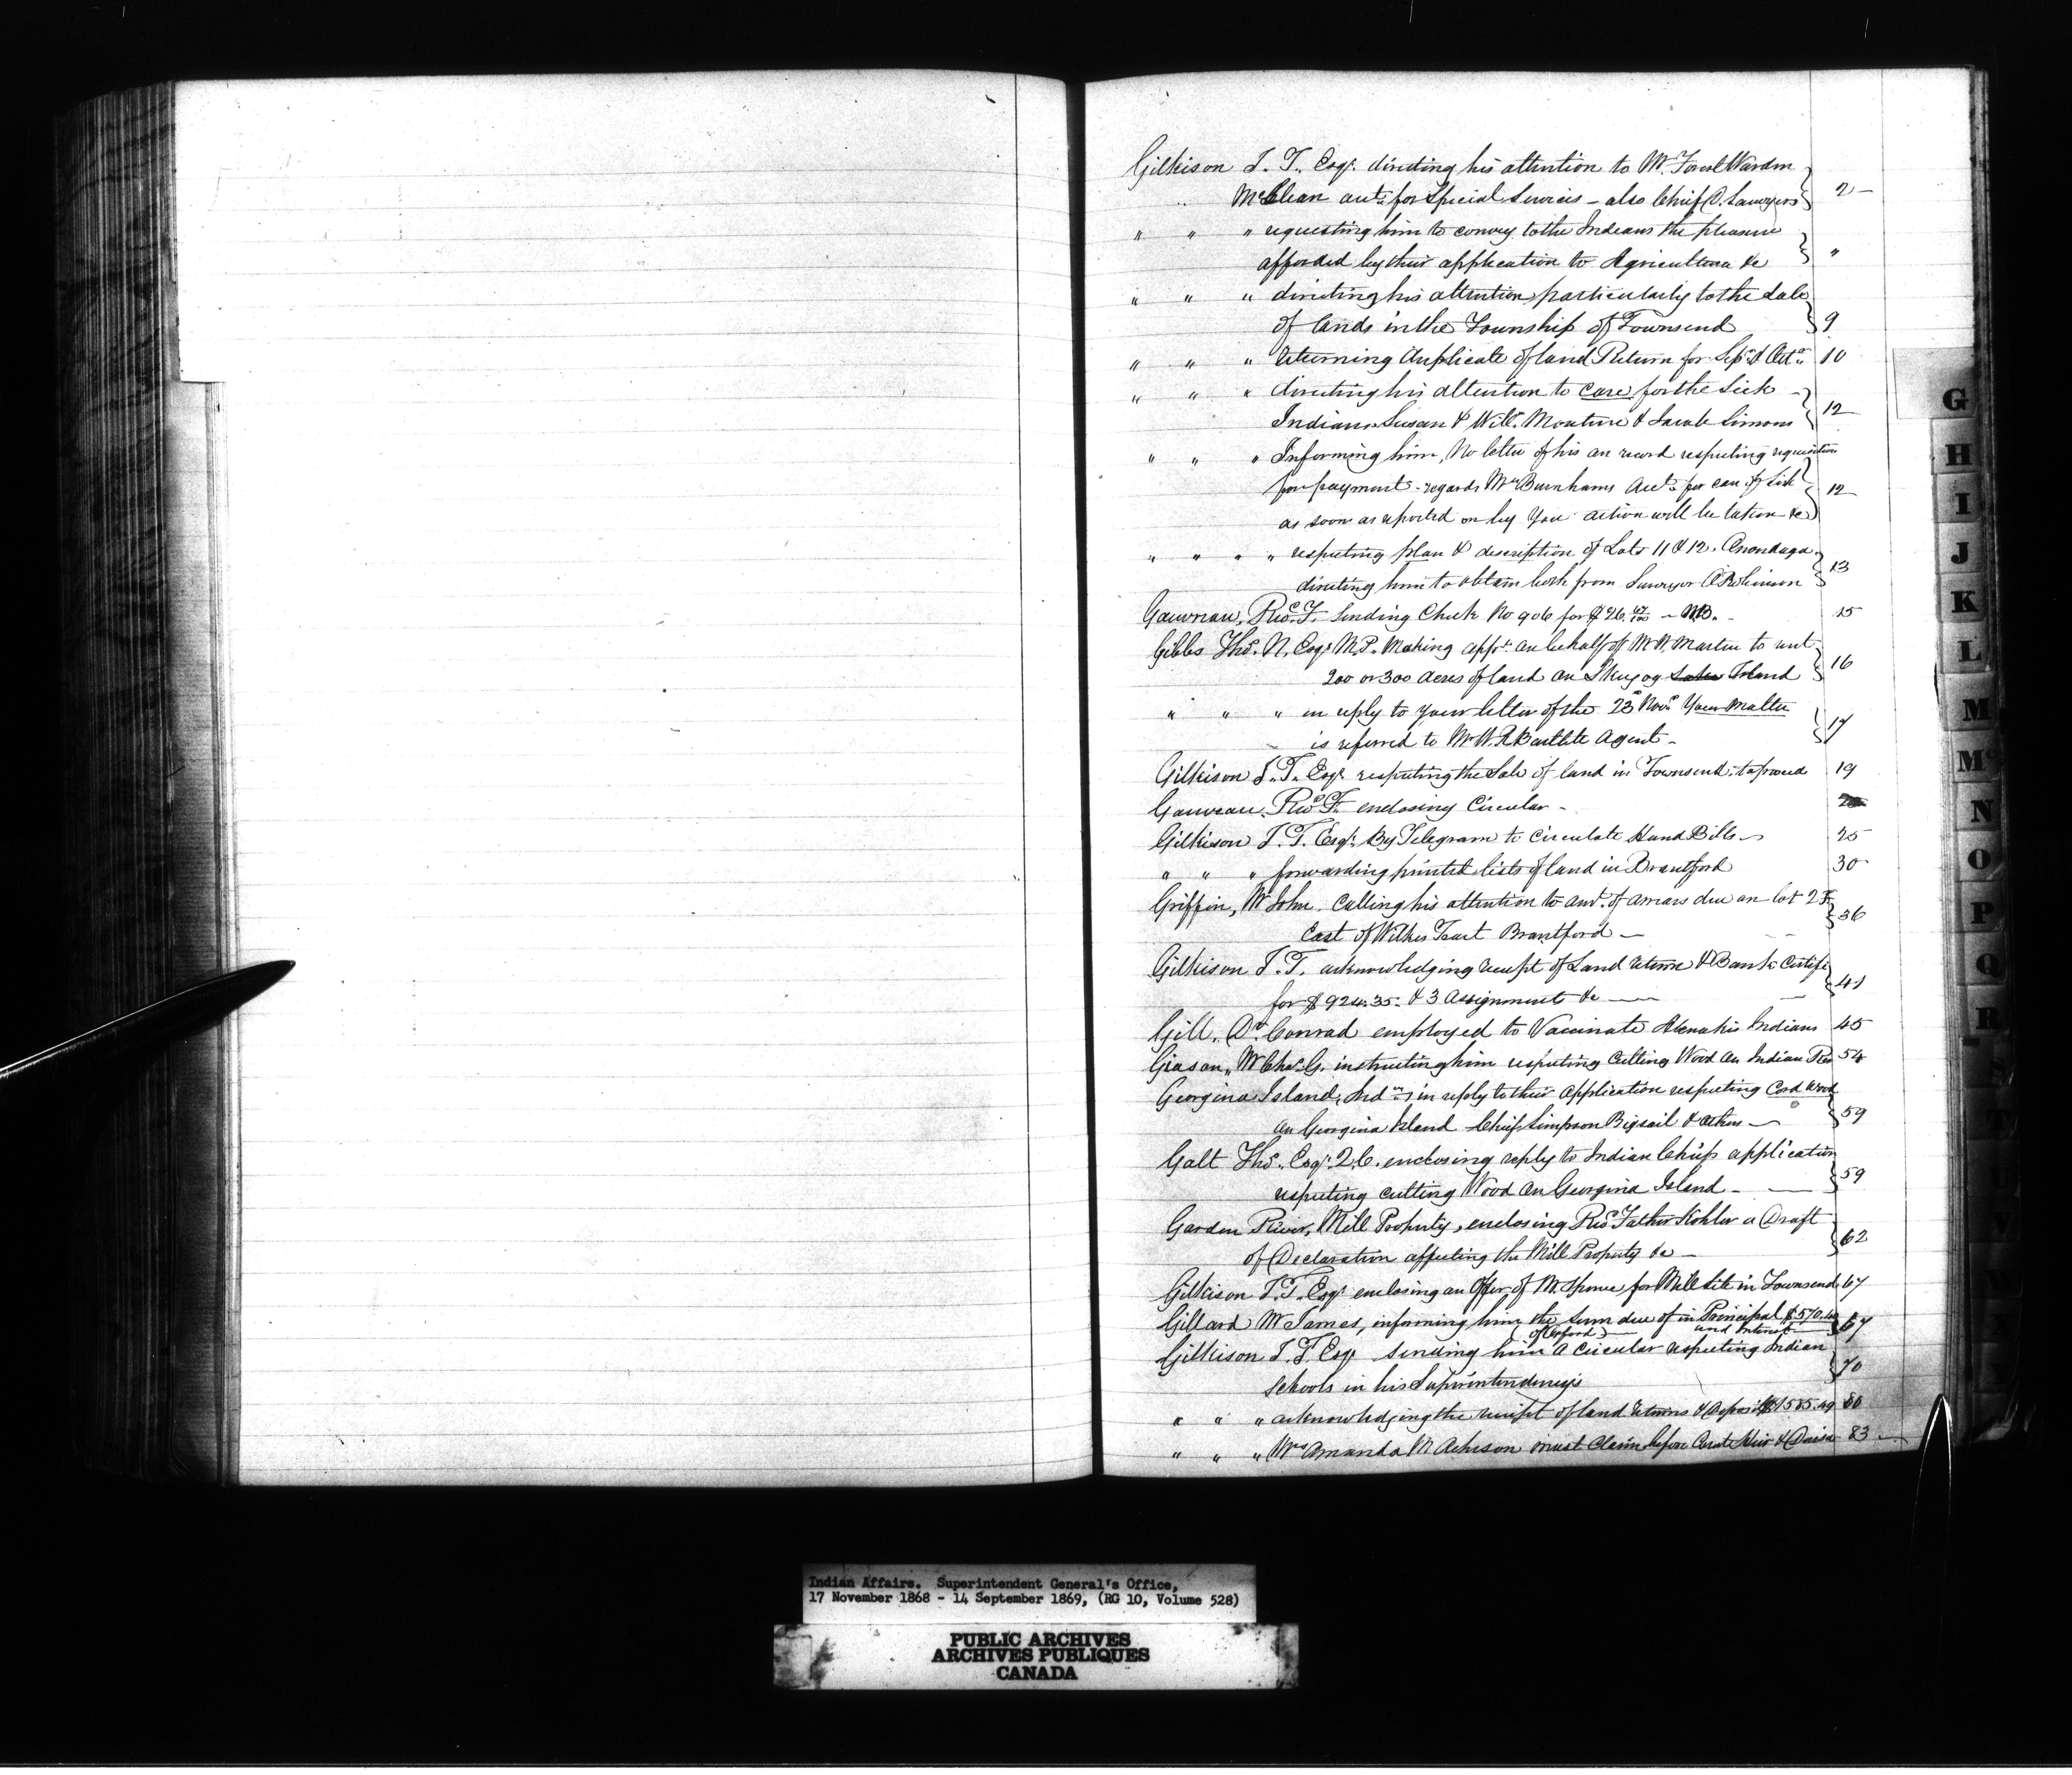 Gilkison J. T. Esqr. directing his attention to Mr. Forest Warden
McClean acct. for Special Services - also Chief D. Sawyers } 2 -
" " " requesting him to convey to the Indians the pleasure
afforded by their application to Agriculture &c } "
" " " directing his attention particularly to the Sale
of lands in the Township of Townsend } 9
" " " returning duplicate of land Return for Sepr. & Octr. 10
" " " directing his attention to Care for the Sick -
Indians Susan & Willm. Mouture & Jacob Simons } 12
" " " Informing him, No letter of his on record respecting requisition
for payment - regards Mr. Burnhams Acct. for care of Sick
as soon as reported on by you action will be taken &c } 12
" " " " respecting plan & description of Lots 11 & 12. Onondaga.
directing him to obtain both from Surveyor O. Robinson } 13
Gauvreau, Revd. F. Sending Check No 906 for $26. 47/100 - 15
Gibbs Thos. N. Esqr. M.P. Making appn. on behalf of Mr W. Martin to rent
200 or 300 Acres of land on Skugog Island } 16
" " " in reply to your letter of the 23rd Novr. Your Matter
is referred to Mr W. R Bartlete Agent - } 17
Gilkison J. T. Esqr. respecting the Sale of land in Townsend, to proceed 19
Gauvreau, Revd. F. enclosing Circular -
Gilkison J. T. Esqr. By Telegram to circulate Hand Bills - 25
" " " forwarding printed lists of land in Brantford 30
Griffin, Mr John. Calling his attention to amt. of arrears due on lot 2
East of Wilkes Tract Brantford - } 36
Gilkison J. T. acknowledging receipt of Land return & Bank Certife
for $924.35. & 3 Assignment &c - } 41
Gill, Dr. Conrad employed to Vaccinate Abenakis Indians 45
Giason, Mr Chas. G. instructing him respecting Cutting Wood on Indian Res 54
Georgina Island, Indns. in reply to their Application respecting Cord Wood
on Georgina Island Chief Simpson Bigsail & others - } 59
Galt Thos. Esqr. Q.C. enclosing reply to Indian Chiefs application
respecting cutting Wood on Georgina Island - } 59
Garden River, Mill Property, enclosing Revd. Father Kohler a Draft
of Declaration affecting the Mill Property &c - } 62
Gilkison J. T. Esqr. enclosing an Offer of M. Spence for Mill Site in Townsend 67
Gillard Mr James, informing him the sum due of in Principal $570.
(of Orford) - and Interest } 67
Gilkison J. T. Esqr sending him a circular respecting Indian
Schools in his Superintendency's } 70
" " " acknowledging the receipt of land returns & Deposit $1585.49 80
" " " Mrs Amanda M. Acheson must Claim before Court Heir & Devisee 83 -
G
H
I
J
K
L
M
Mc
N
O
P
Q
R
S
Indian Affairs. Superintendent General's Office,
17 November 1868 - 14 September 1869, (RG 10, Volume 528)
PUBLIC ARCHIVES
ARCHIVES PUBLIQUES
CANADA